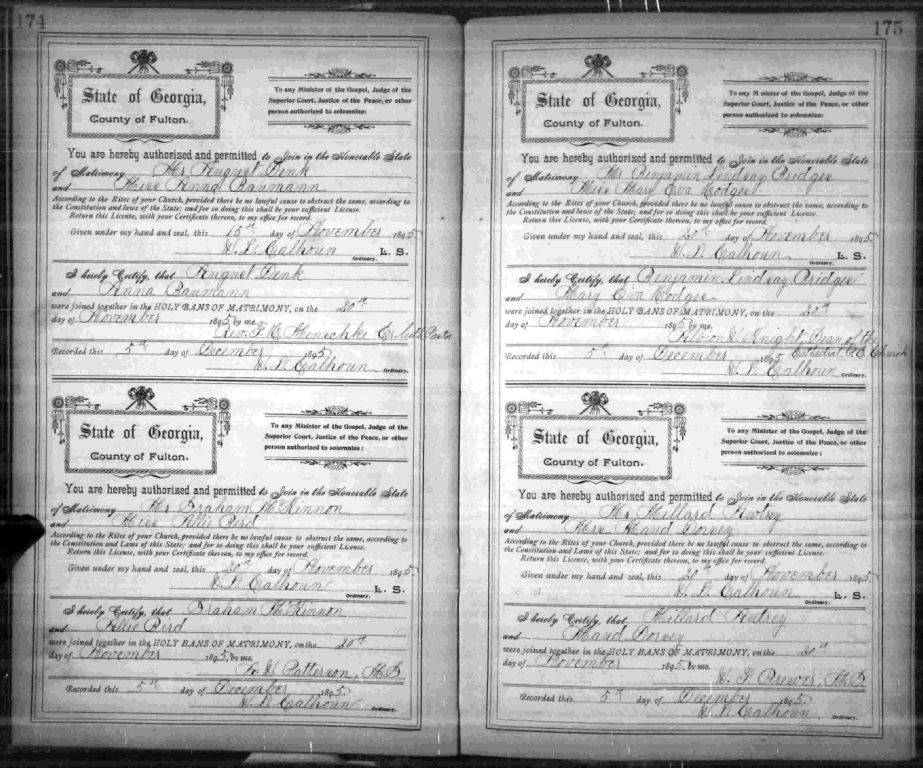 174
State of Georgia,
County of Fulton.
To any Minister of the Gospel, Judge of the
Superior Court, Justice of the Peace, or other
person authorized to solemnize:
You are hereby authorized and permitted to Join in the Honorable State
of Matrimony Mr August Denk
and Miss Anna Baumann
According to the Rites of your Church, provided there be no lawful cause to obstruct the same, according to
the Constitution and laws of the State; and for so doing this shall be your sufficient License.
Return this License, with your Certificate thereon, to my office for record.
Given under my hand and seal, this 15th day of November 1895.
W. L. Calhoun L. S.
Ordinary.
I hereby Certify, that August Denk
and Anna Baumann
were joined together in the HOLY BANS OF MATRIMONY, on the 20th
day of November 1895 by me.
Rev.
Recorded this 5th day of December 1895.
W. L. Calhoun Ordinary.
State of Georgia,
County of Fulton.
To any Minister of the Gospel, Judge of the
Superior Court, Justice of the Peace, or other
person authorized to solemnize:
You are hereby authorized and permitted to Join in the Honorable State
of Matrimony Mr Graham McKinnon
and Miss Allie Bird
According to the Rites of your Church, provided there be no lawful cause to obstruct the same, according to
the Constitution and Laws of this State; and for so doing this shall be your sufficient License.
Return this License, with your Certificate thereon, to my office for record.
Given under my hand and seal, this 20th day of November 1895.
W. L. Calhoun L. S.
Ordinary.
I hereby Certify, that Graham McKinnon
and Allie Bird
were joined together in the HOLY BANS OF MATRIMONY, on the 20th
day of November 1895, by me.
Patterson, M G
Recorded this 5th day of December 1895.
W. L. Calhoun Ordinary.
175
State of Georgia,
County of Fulton.
To any Minister of the Gospel, Judge of the
Superior Court, Justice of the Peace, or other
person authorized to solemnize:
You are hereby authorized and permitted to Join in the Honorable State
of Matrimony Mr Benjamin Lindsay Bridges
and Miss Mary Eva Hodges
According to the Rites of your Church, provided there be no lawful cause to obstruct the same, according to
the Constitution and laws of the State; and for so doing this shall be your sufficient License.
Return this License, with your Certificate thereon, to my office for record.
Given under my hand and seal, this 20th day of November 1895.
W. L. Calhoun L. S.
Ordinary.
I hereby Certify, that Benjamin Lindsay Bridges
and Mary Eva Hodges
were joined together in the HOLY BANS OF MATRIMONY, on the 20th
day of November 1895 by me.
Albion W Knight Dean of the
Cathedral P.E. Church
Recorded this 5th day of December 1895
W. L. Calhoun Ordinary.
State of Georgia,
County of Fulton.
To any Minister of the Gospel, Judge of the
Superior Court, Justice of the Peace, or other
person authorized to solemnize:
You are hereby authorized and permitted to Join in the Honorable State
of Matrimony Mr Millard Autrey
and Mrs Maud Dorsey
According to the Rites of your Church, provided there be no lawful cause to obstruct the same, according to
the Constitution and Laws of this State; and for so doing this shall be your sufficient License.
Return this License, with your Certificate thereon, to my office for record.
Given under my hand and seal, this 20th day of November 1895
W. L. Calhoun L. S.
Ordinary.
I hereby Certify, that Millard Autrey
and Maud Dorsey
were joined together in the HOLY BANS OF MATRIMONY, on the 20th
day of November 1895, by me.
Brewer, M G
Recorded this 5th day of December 1895.
W. L. Calhoun Ordinary.